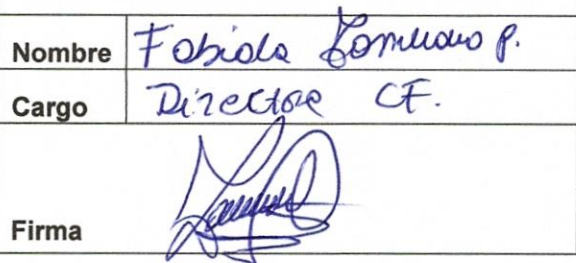 Nombre Fabiola Zambrano P.
Cargo Directora CF.
Firma